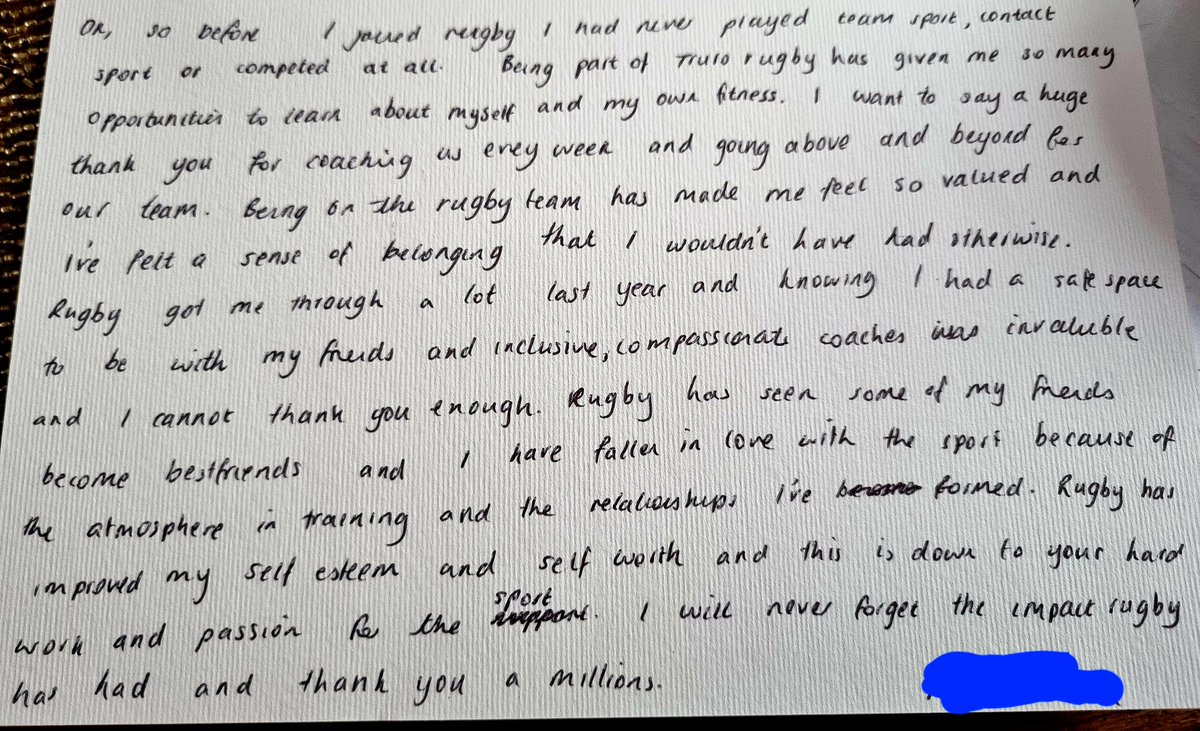 OK, so before I joined rugby I had never played team sport, contact
sport or competed at all. Being part of Truro rugby has given me so many
opportunities to learn about myself and my own fitness. I want to say a huge
thank you for coaching us evey week and going above and beyond for
our team. Being on the rugby team has made me feel so valued and
i've felt a sense of belonging that I wouldn't have had otherwise.
Rugby got me through a lot last year and knowing I had a safe space
to be with my freids and inclusive, compassionate coaches was invaluble
and I cannot thank you enough. Rugby has seen some of my freids
become bestfriends and I have fallen in love with the sport because of
the atmosphere in training and the relationships i've formed. Rugby has
improved my self esteem and self worth and this is down to your hard
work and passion for the sport. I will never forget the impact rugby
has had and thank you a millions.